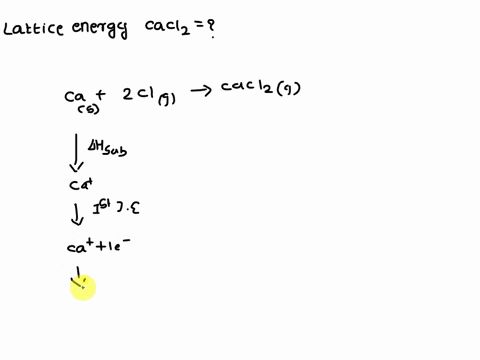 Lattice energy CaCl2 = ?
Ca(s) + 2Cl(g) → CaCl2(g)
ΔHsub
Ca+
Ist I.E
Ca+ + 1e-